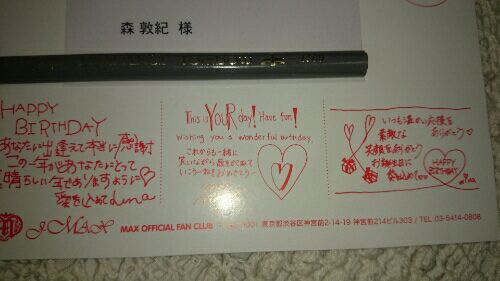 森 敦紀 様
HAPPY
BIRTHDAY
あなたに出逢えて本当に感謝
この一年があなたにとって
素晴らしい一年でありますように♡
愛を込めて Luna
This is YOUR day! Have fun!
Wishing you a wonderful birthday.
これからも一緒に
笑いながら歳をかさねて
いこうね
いつも温かい応援を
ありがとう♡
素敵な
笑顔を
お誕生日に
HAPPY
BIRTHDAY
J-MAX
MAX OFFICIAL FAN CLUB
東京都渋谷区神宮前2-14-19 神宮前214ビル303 / TEL 03-5414-0808